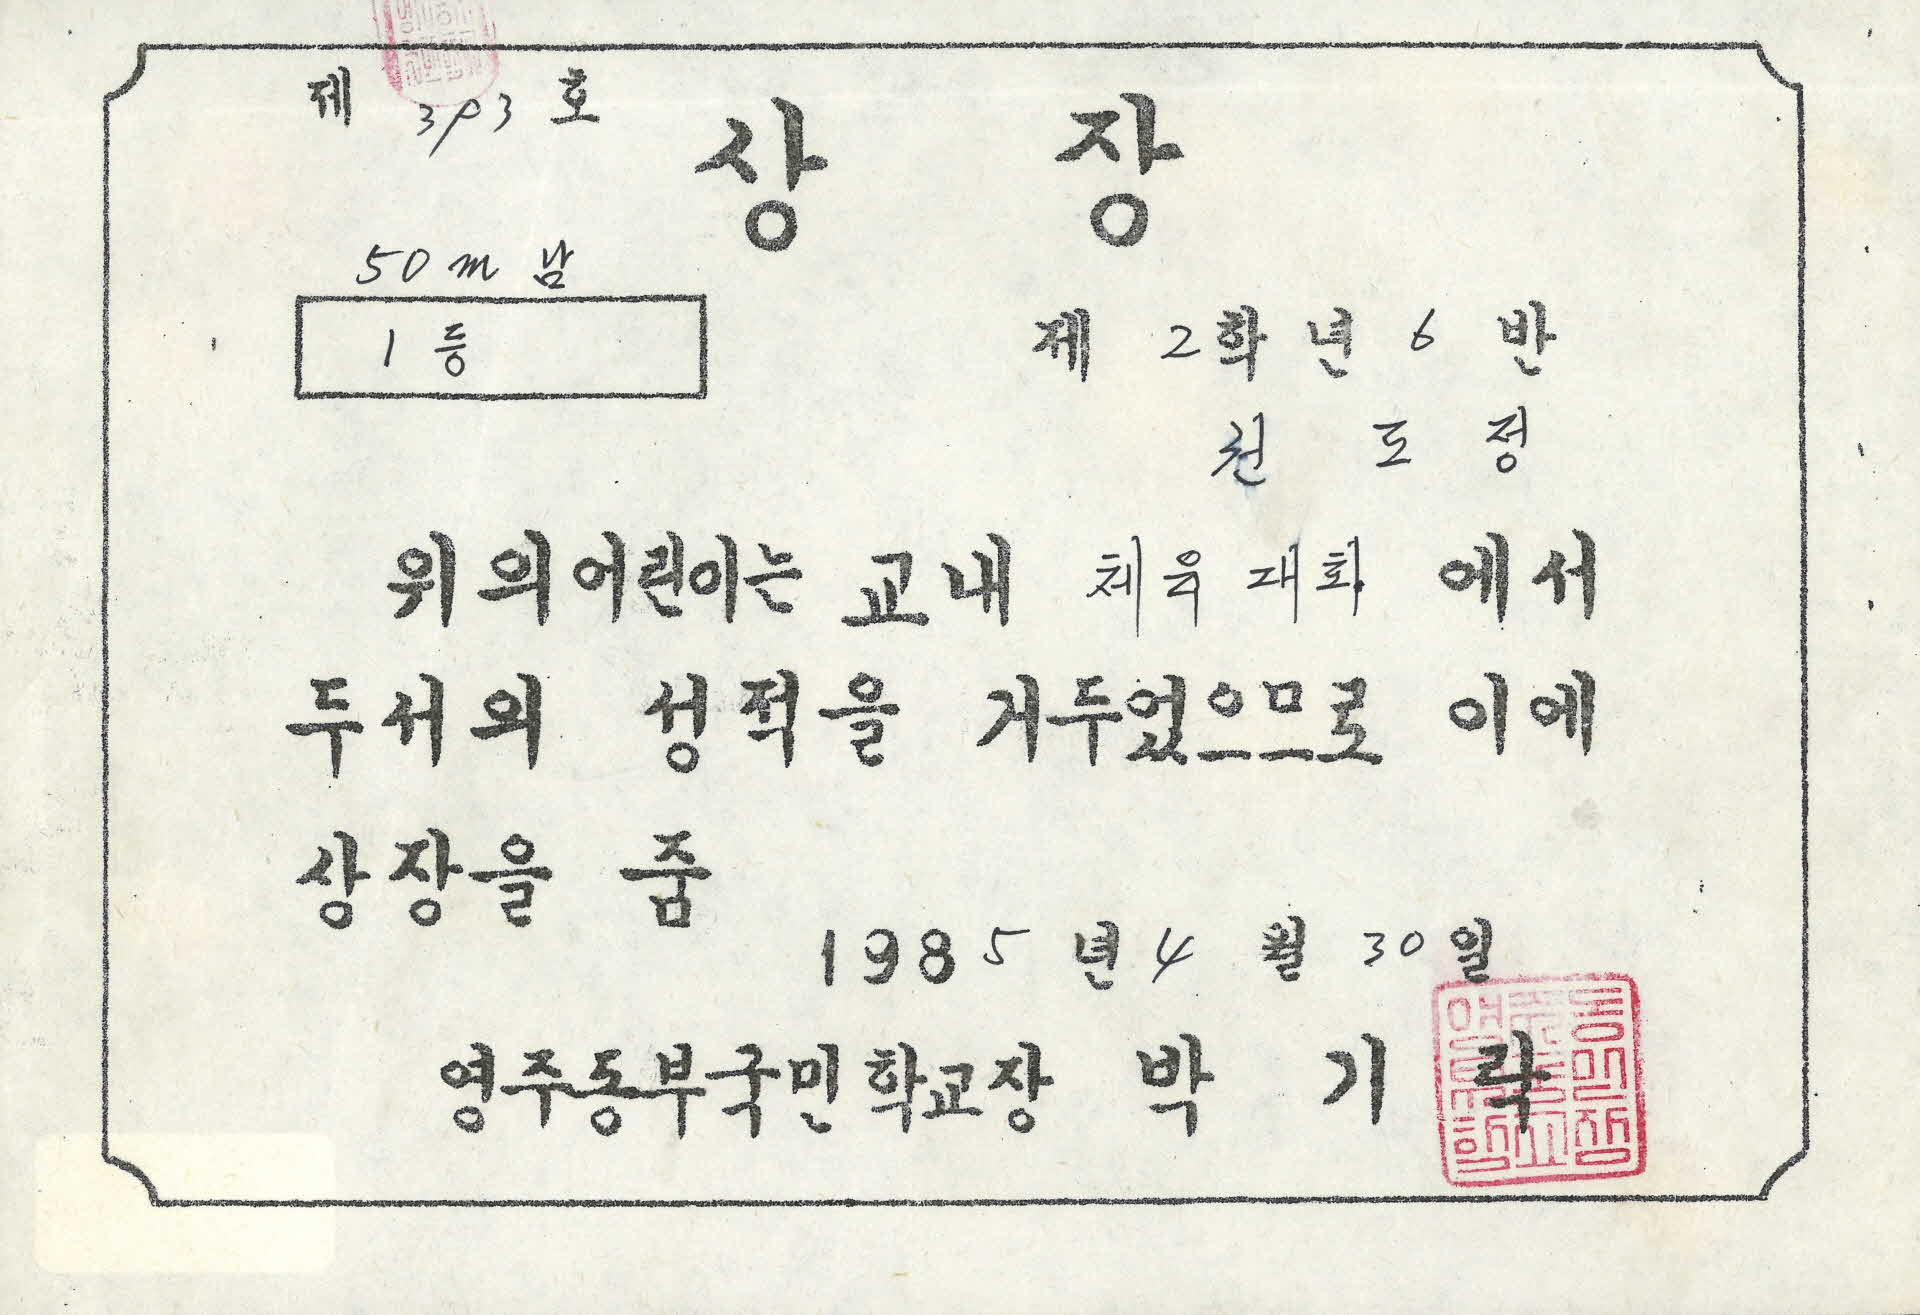 제 393 호
상 장
50m 남
1 등
제 2학년 6 반
권 도 정
위의어린이는 교내 체육대회 에서
두서의 성적을 거두었으므로 이에
상장을 줌
1985 년 4 월 30 일
영주동부국민학교장 박 기 락